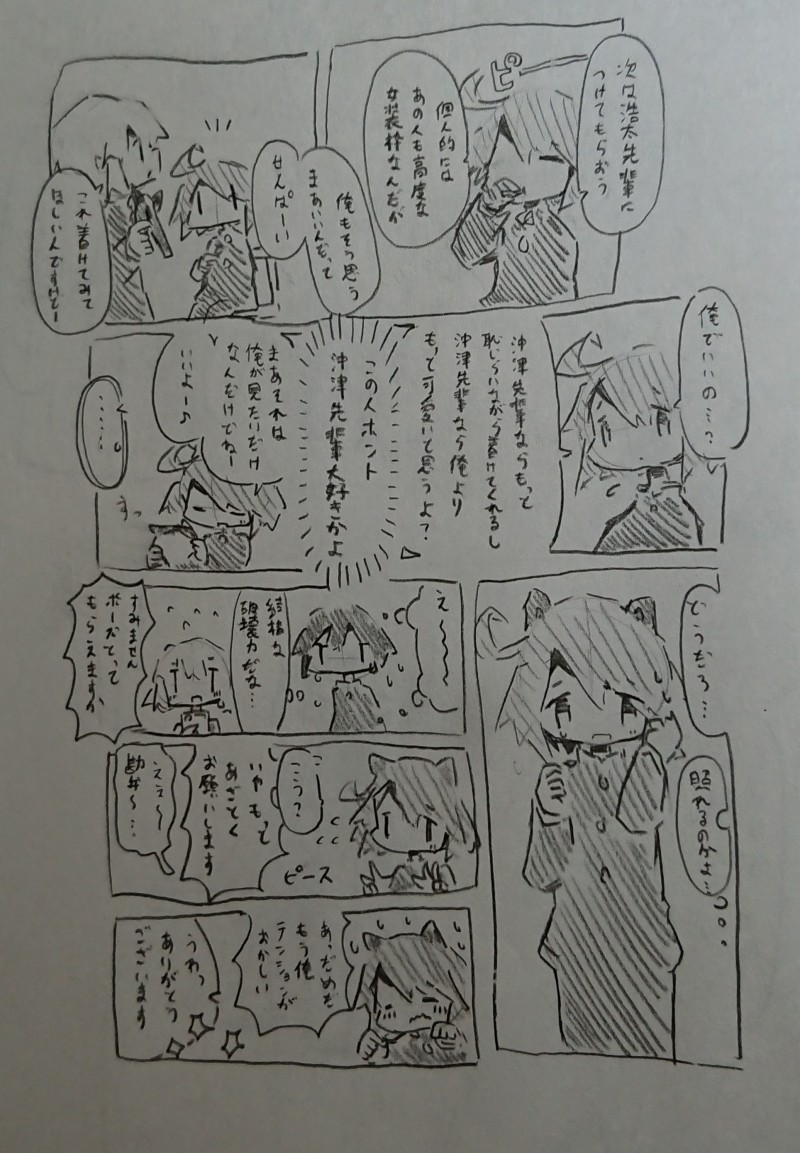 次は浩太先輩に
つけてもらおう
ピ
個人的には
あの人も高度な
女装枠なんだが
俺もそう思う
まあいいんだって
せんぱーい
これ着けてみて
ほしいんですけどー
俺でいいの…?
沖津先輩ならもって
恥じらいながら着けてくれるし
沖津先輩なら俺より
もって可愛いて思うよ?
この人ホント
沖津先輩大好きかよ
まあそれは
俺が見たいだけ
なんだけどねー
いいよー♪
………。
すっ
どうだろ…
照れるのかよ…
え〜〜〜
結構な
破壊力だな…
すみません
ポーズとって
もらえますか
こう?
ピース
いやもって
あざとく
お願いします
ええ〜
勘弁〜…
あっだめだ
もう俺
テンションが
おかしい
うわっ
ありがとう
ございます